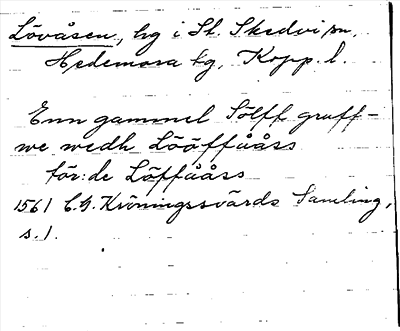 Lövåsen, by i St. Skedvi sn,
Hedemora tg, Kopp. l.
Enn gammel Sölff gruff-
we wedh Lööffååss
för: de Löffååss
1561 C.G. Kröningssvärds Samling,
s. 1.